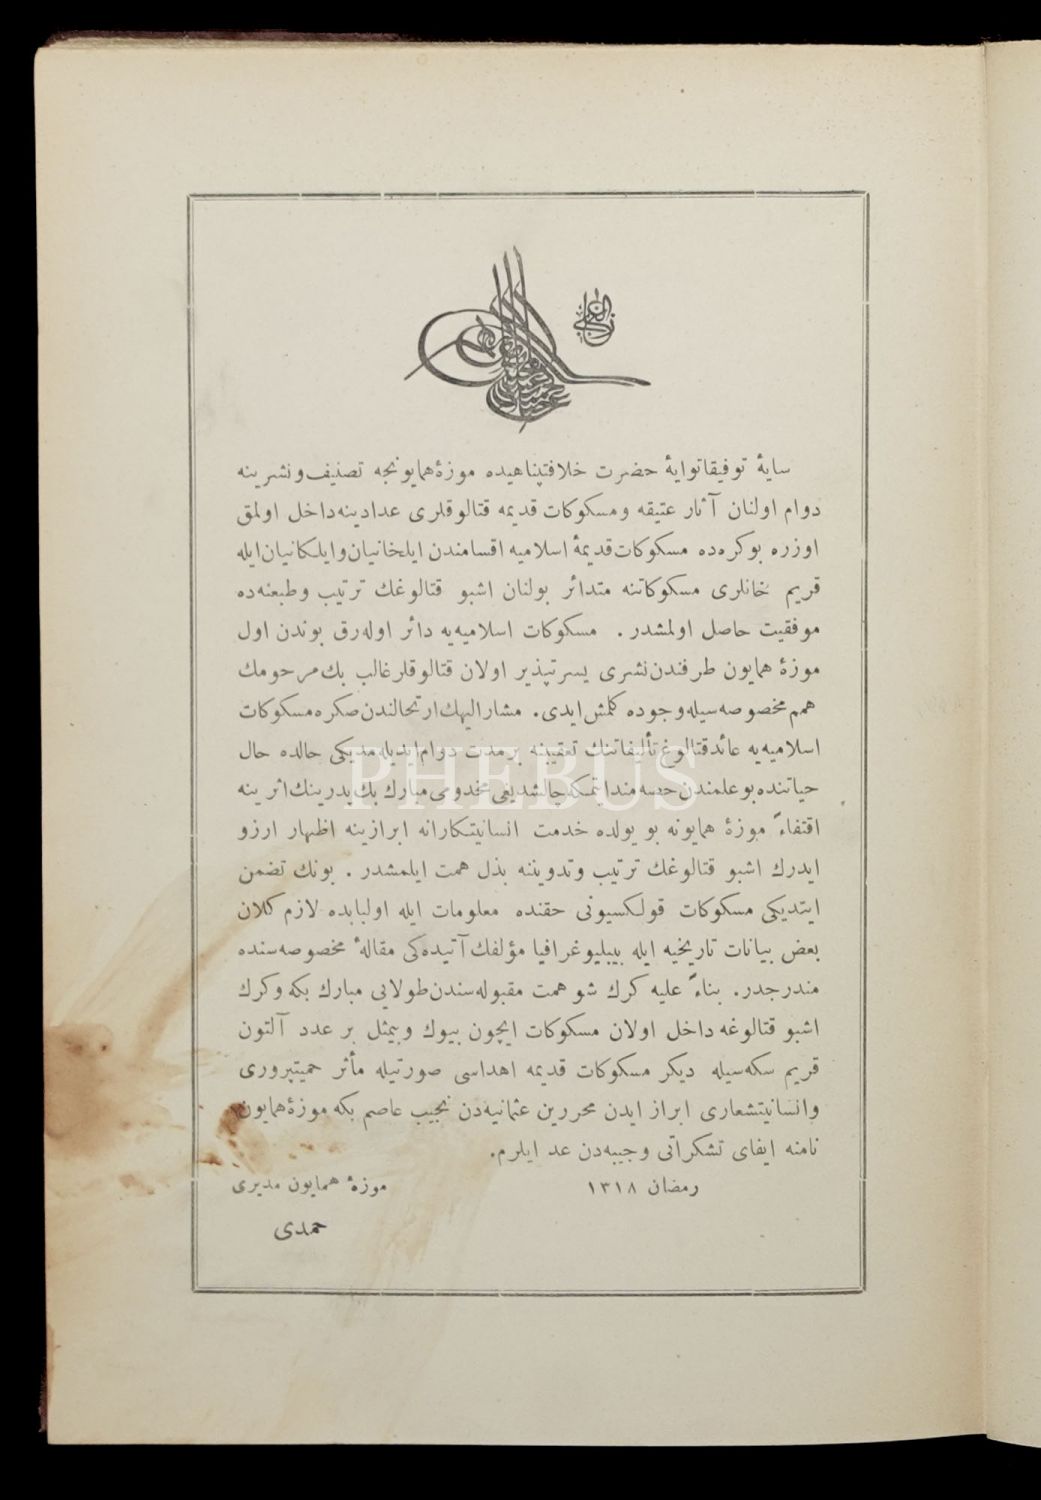 سایهٔ توفیقاتوایهٔ حضرت خلافتپناهیده موزهٔ همایونجه تصنیف و نشرینه
دوام اولنان آثار عتیقه و مسکوکات قدیمه قتالوقلری عدادینه داخل اولمق
اوزره بوکره‌ده مسکوکات قدیمهٔ اسلامیه اقسامندن ایلخانیان و ایلکانیان ایله
قریم خانلری مسکوکاتنه متدائر بولنان اشبو قتالوغك ترتیب و طبعنه‌ده
موفقیت حاصل اولمشدر. مسکوکات اسلامیه‌یه دائر اوله‌رق بوندن اول
موزهٔ همایون طرفندن نشری یسرتپذیر اولان قتالوقلر غالب بك مرحومك
همم مخصوصه‌سیله وجوده کلمش ایدی. مشارالیهك ارتحالندن صکره مسکوکات
اسلامیه‌یه عائد قتالوغ تألیفاتنك تعقیبنه بر مدت دوام ایدیله‌مدیکی حالده حال
حیاتنده بو علمندن حصه‌مند ایتمکه چالشدیغی مخدومی مبارك بك پدرینك اثرینه
اقتفاءً موزهٔ همایونه بو یولده خدمت انسانیتکارانه ابرازینه اظهار ارزو
ایدرك اشبو قتالوغك ترتیب و تدویننه بذل همت ایلمشدر. بونك تضمن
ایتدیکی مسکوکات قولکسیونی حقنده معلومات ایله اولبابده لازم کلان
بعض بیانات تاریخیه ایله بیبلیوغرافیا مؤلفك آتیده‌کی مقالهٔ مخصوصه‌سنده
مندرجدر. بناءً علیه کرك شو همت مقبوله‌سندن طولایی مبارك بکه و کرك
اشبو قتالوغه داخل اولان مسکوکات ایچون بیوك و بیمثل بر عدد آلتون
قریم سکه‌سیله دیکر مسکوکات قدیمه اهداسی صورتیله مأثر حمیتپروری
و انسانیتشعاری ابراز ایدن محررین عثمانیه‌دن نجیب عاصم بکه موزهٔ همایون
نامنه ایفای تشکراتی وجیبه‌دن عد ایلرم.
رمضان ١٣١٨ موزهٔ همایون مدیری
حمدی
PHEBUS